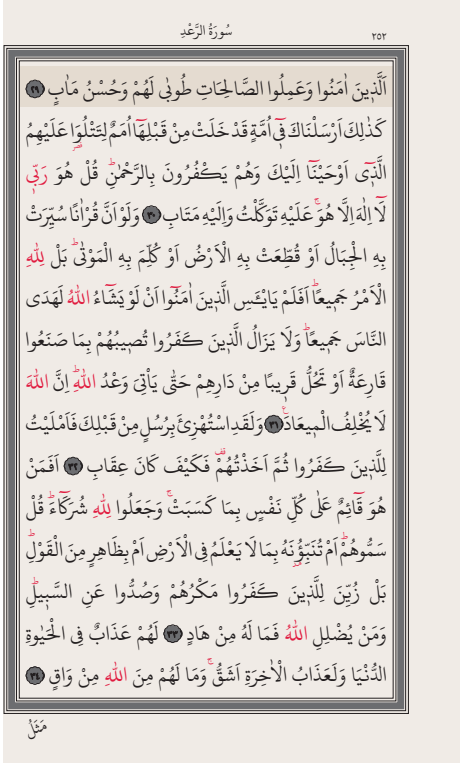 ٢٥٢
سُورَةُ الرَّعْدِ
اَلَّذ۪ينَ اٰمَنُوا وَعَمِلُوا الصَّالِحَاتِ طُوبٰى لَهُمْ وَحُسْنُ مَاٰبٍ ﴿٢٩﴾
كَذٰلِكَ اَرْسَلْنَاكَ ف۪ٓي اُمَّةٍ قَدْ خَلَتْ مِنْ قَبْلِهَٓا اُمَمٌ لِتَتْلُوَ۬ا عَلَيْهِمُ
الَّذ۪ٓي اَوْحَيْنَٓا اِلَيْكَ وَهُمْ يَكْفُرُونَ بِالرَّحْمٰنِۜ قُلْ هُوَ رَبّ۪ي
لَٓا اِلٰهَ اِلَّا هُوَۚ عَلَيْهِ تَوَكَّلْتُ وَاِلَيْهِ مَتَابِ ﴿٣٠﴾ وَلَوْ اَنَّ قُرْاٰنًا سُيِّرَتْ
بِهِ الْجِبَالُ اَوْ قُطِّعَتْ بِهِ الْاَرْضُ اَوْ كُلِّمَ بِهِ الْمَوْتٰىۜ بَلْ لِلّٰهِ
الْاَمْرُ جَم۪يعًاۜ اَفَلَمْ يَايْـَٔسِ الَّذ۪ينَ اٰمَنُٓوا اَنْ لَوْ يَشَٓاءُ اللّٰهُ لَهَدَى
النَّاسَ جَم۪يعًاۜ وَلَا يَزَالُ الَّذ۪ينَ كَفَرُوا تُص۪يبُهُمْ بِمَا صَنَعُوا
قَارِعَةٌ اَوْ تَحُلُّ قَر۪يبًا مِنْ دَارِهِمْ حَتّٰى يَأْتِيَ وَعْدُ اللّٰهِۜ اِنَّ اللّٰهَ
لَا يُخْلِفُ الْم۪يعَادَ۟ ﴿٣١﴾ وَلَقَدِ اسْتُهْزِئَ بِرُسُلٍ مِنْ قَبْلِكَ فَاَمْلَيْتُ
لِلَّذ۪ينَ كَفَرُوا ثُمَّ اَخَذْتُهُمْ۠ فَكَيْفَ كَانَ عِقَابِ ﴿٣٢﴾ اَفَمَنْ
هُوَ قَٓائِمٌ عَلٰى كُلِّ نَفْسٍ بِمَا كَسَبَتْۚ وَجَعَلُوا لِلّٰهِ شُرَكَٓاءَۜ قُلْ
سَمُّوهُمْۜ اَمْ تُنَبِّؤُ۫نَهُ بِمَا لَا يَعْلَمُ فِي الْاَرْضِ اَمْ بِظَاهِرٍ مِنَ الْقَوْلِۜ
بَلْ زُيِّنَ لِلَّذ۪ينَ كَفَرُوا مَكْرُهُمْ وَصُدُّوا عَنِ السَّب۪يلِۜ
وَمَنْ يُضْلِلِ اللّٰهُ فَمَا لَهُ مِنْ هَادٍ ﴿٣٣﴾ لَهُمْ عَذَابٌ فِي الْحَيٰوةِ
الدُّنْيَا وَلَعَذَابُ الْاٰخِرَةِ اَشَقُّۚ وَمَا لَهُمْ مِنَ اللّٰهِ مِنْ وَاقٍ ﴿٣٤﴾
مَثَلُ